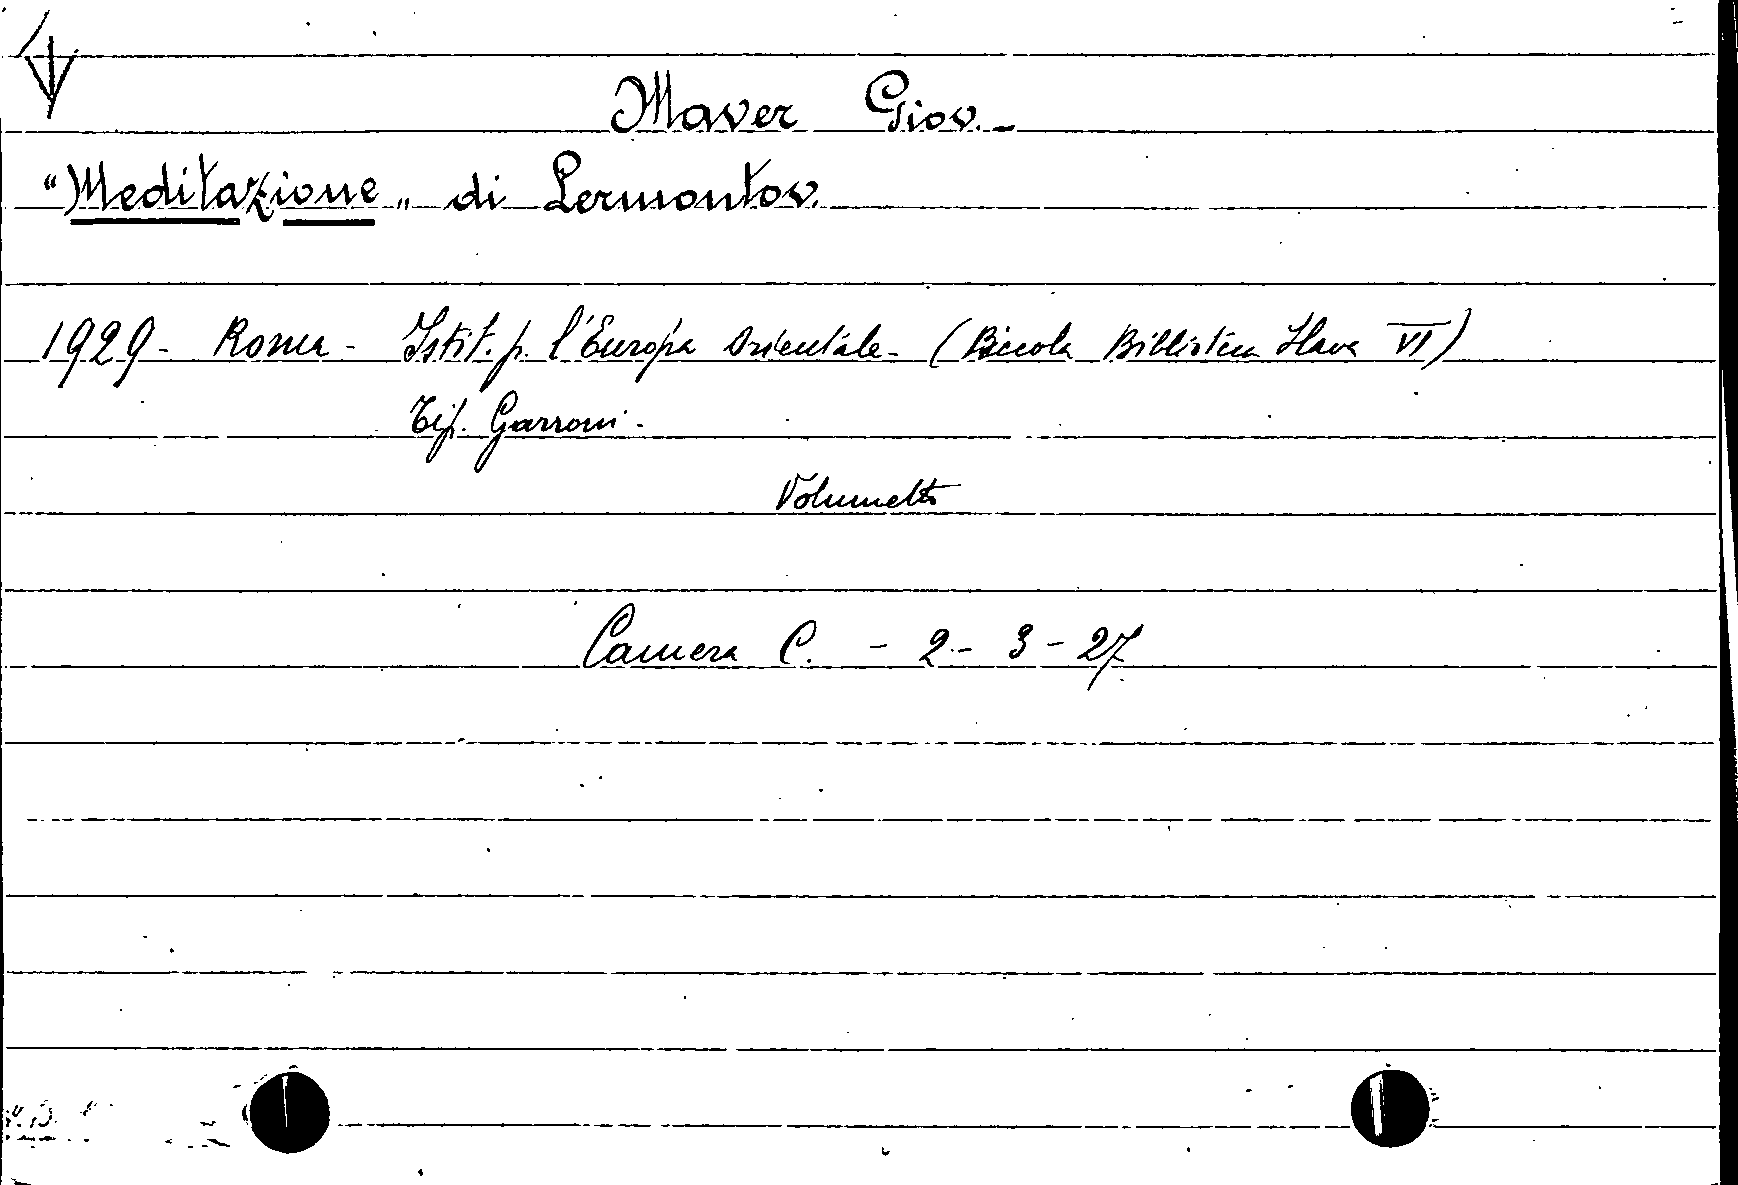 Maver Giov.-
"Meditazione„ di Lermontov.
1929- Roma- Istit. p. l'Europa Orientale- (Piccola Biblioteca Slava VI)
Tip. Garroni-
Volumetto
Camera C. - 2 - 3 - 27